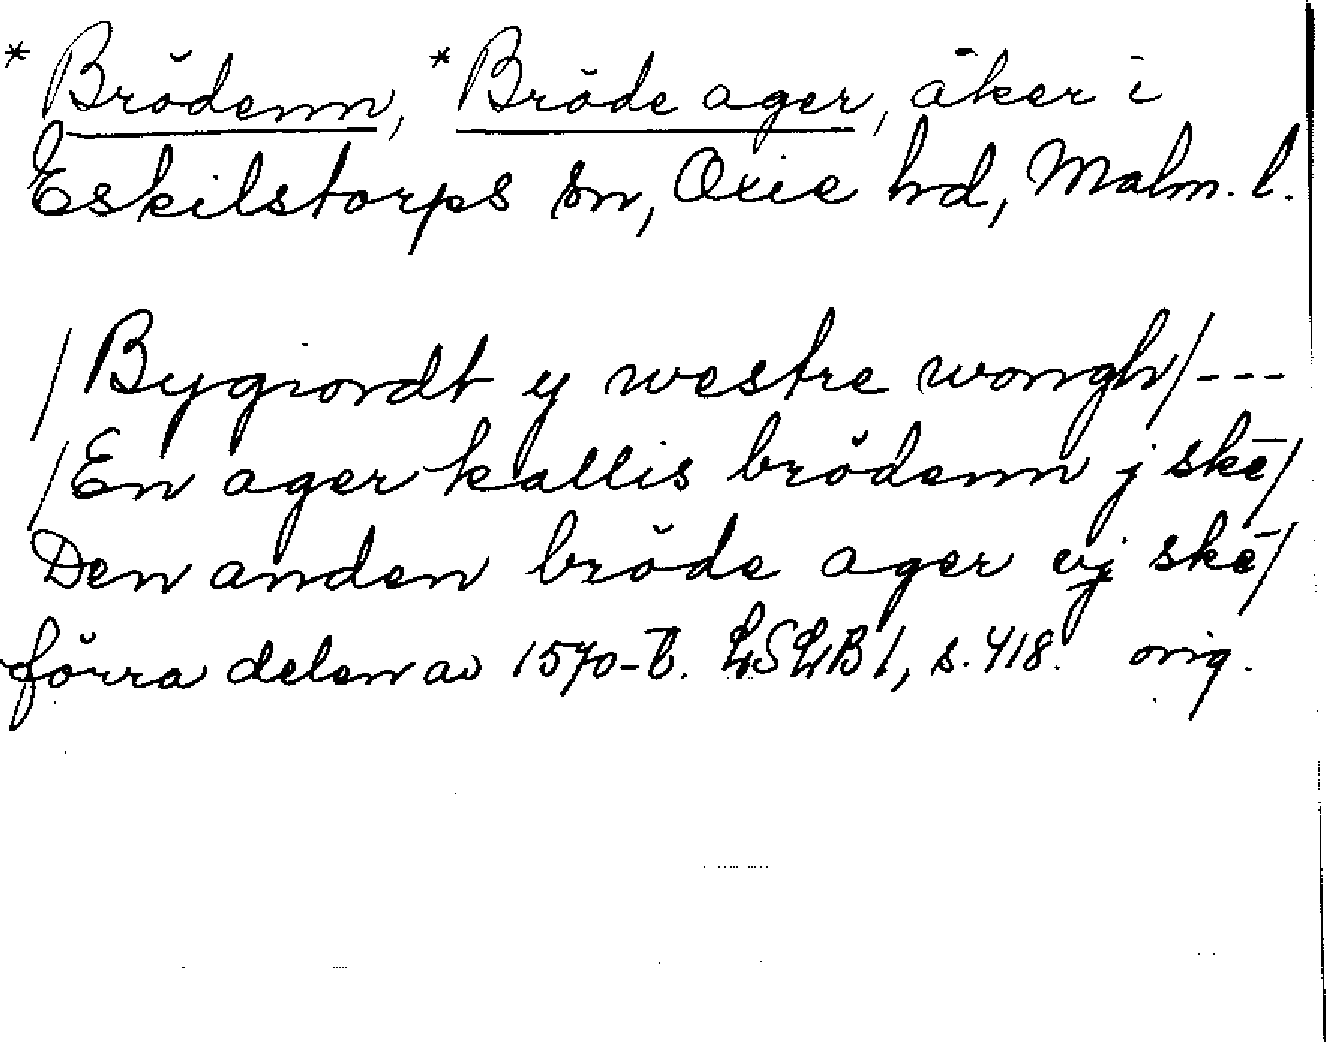 * Brödenn, * Bröde ager, åker i
Eskilstorps sn, Oxie hd, Malm. l.
/Bygiordt y westre wongh/---
/En ager kallis brödenn j skē/
Den anden bröde ager vj skē/
förra delen av 1570-t. LSLB I, s. 418. orig.